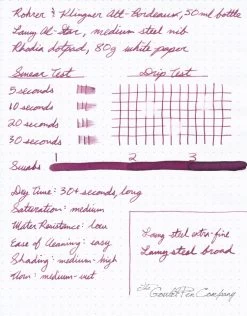 Rohrer & Klingner Alt-Bordeaux, 50 ml bottle
Lamy Al-Star, medium steel nib
Rhodia dotpad, 80g white paper
Smear Test
Drip Test
5 seconds
10 seconds
20 seconds
30 seconds
Swabs
1 2 3
Dry Time: 30+ seconds, long
Saturation: medium
Water Resistance: low
Ease of Cleaning: easy
Shading: medium-high
Flow: medium-wet
Lamy steel extra-fine
Lamy steel broad
The Goulet Pen Company